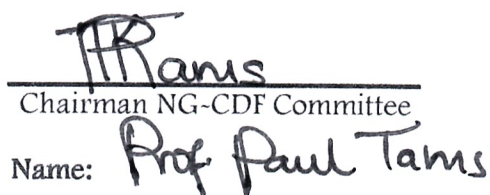 Chairman NG-CDF Committee
Name: Prof Paul Tams